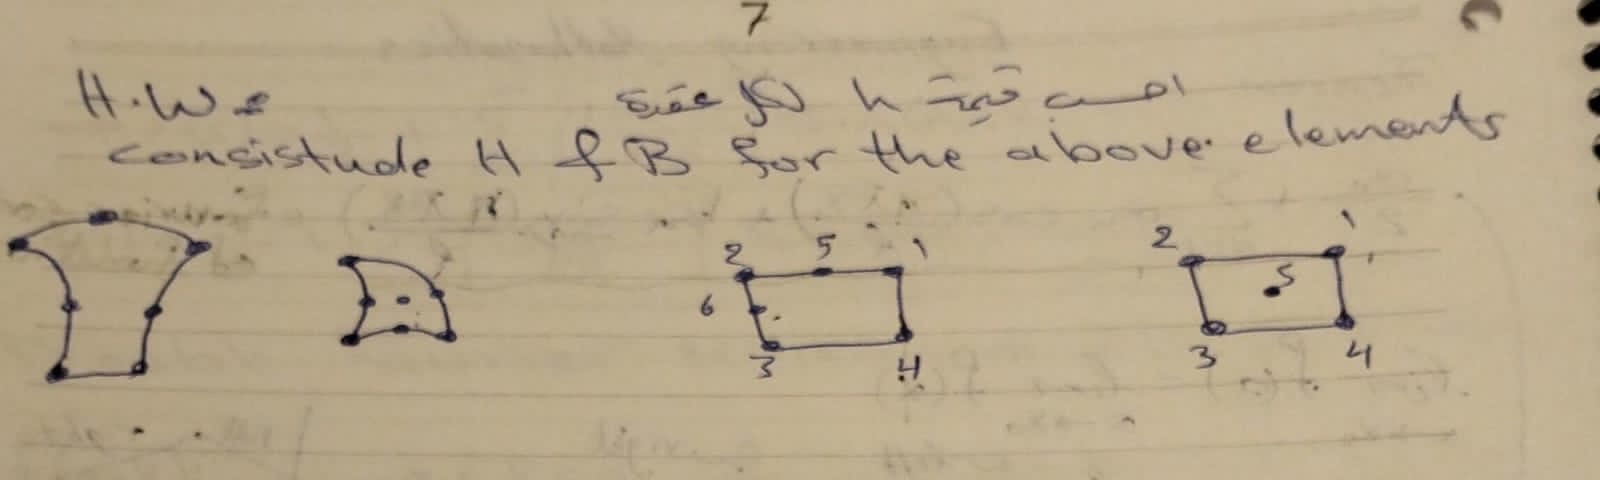 7
H.W:
احسب قيمة h لكل عقدة
consistude H & B for the above elements
2 5 1
6
3 4
2 1
5
3 4